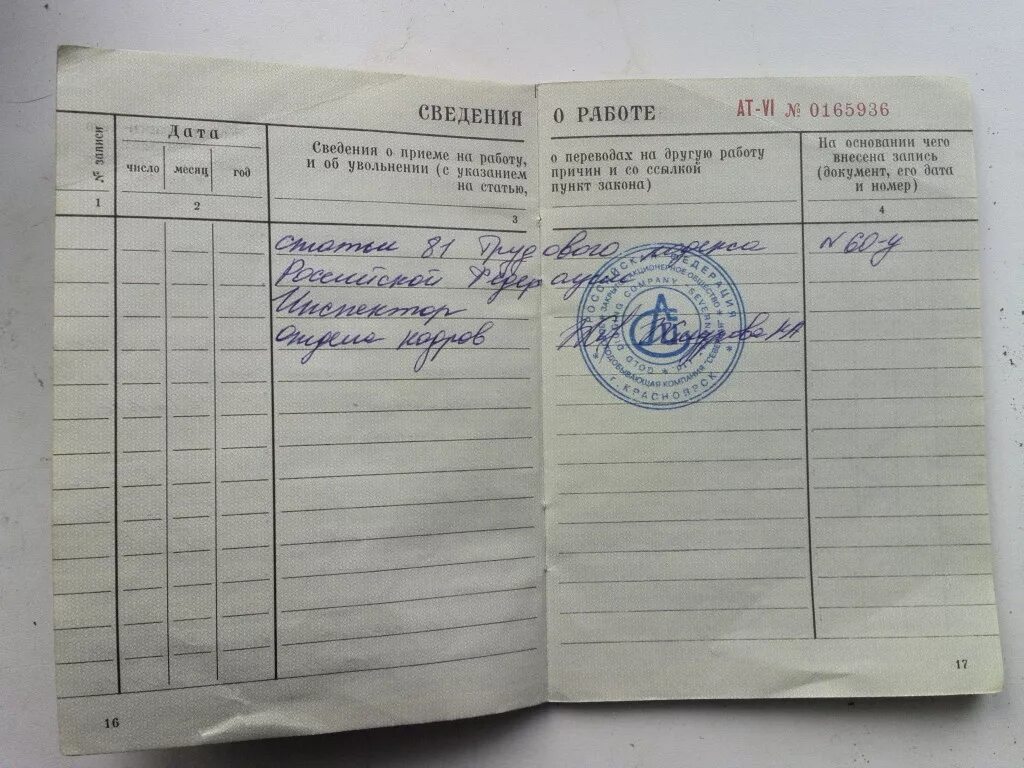 СВЕДЕНИЯ О РАБОТЕ АТ-VI № 0165936
№ записи
Дата
число месяц год
Сведения о приеме на работу, о переводах на другую работу
и об увольнении (с указанием причин и со ссылкой
на статью, пункт закона)
На основании чего
внесена запись
(документ, его дата
и номер)
1 2 3 4
статьи 81 Трудового кодекса N 60-у
Российской Федерации
Инспектор
отдела кадров
РОССИЙСКАЯ ФЕДЕРАЦИЯ
ЗАКРЫТОЕ АКЦИОНЕРНОЕ ОБЩЕСТВО
ЗОЛОТОДОБЫВАЮЩАЯ КОМПАНИЯ "СЕВЕРНАЯ"
GOLD MINING COMPANY
г. КРАСНОЯРСК
16
17